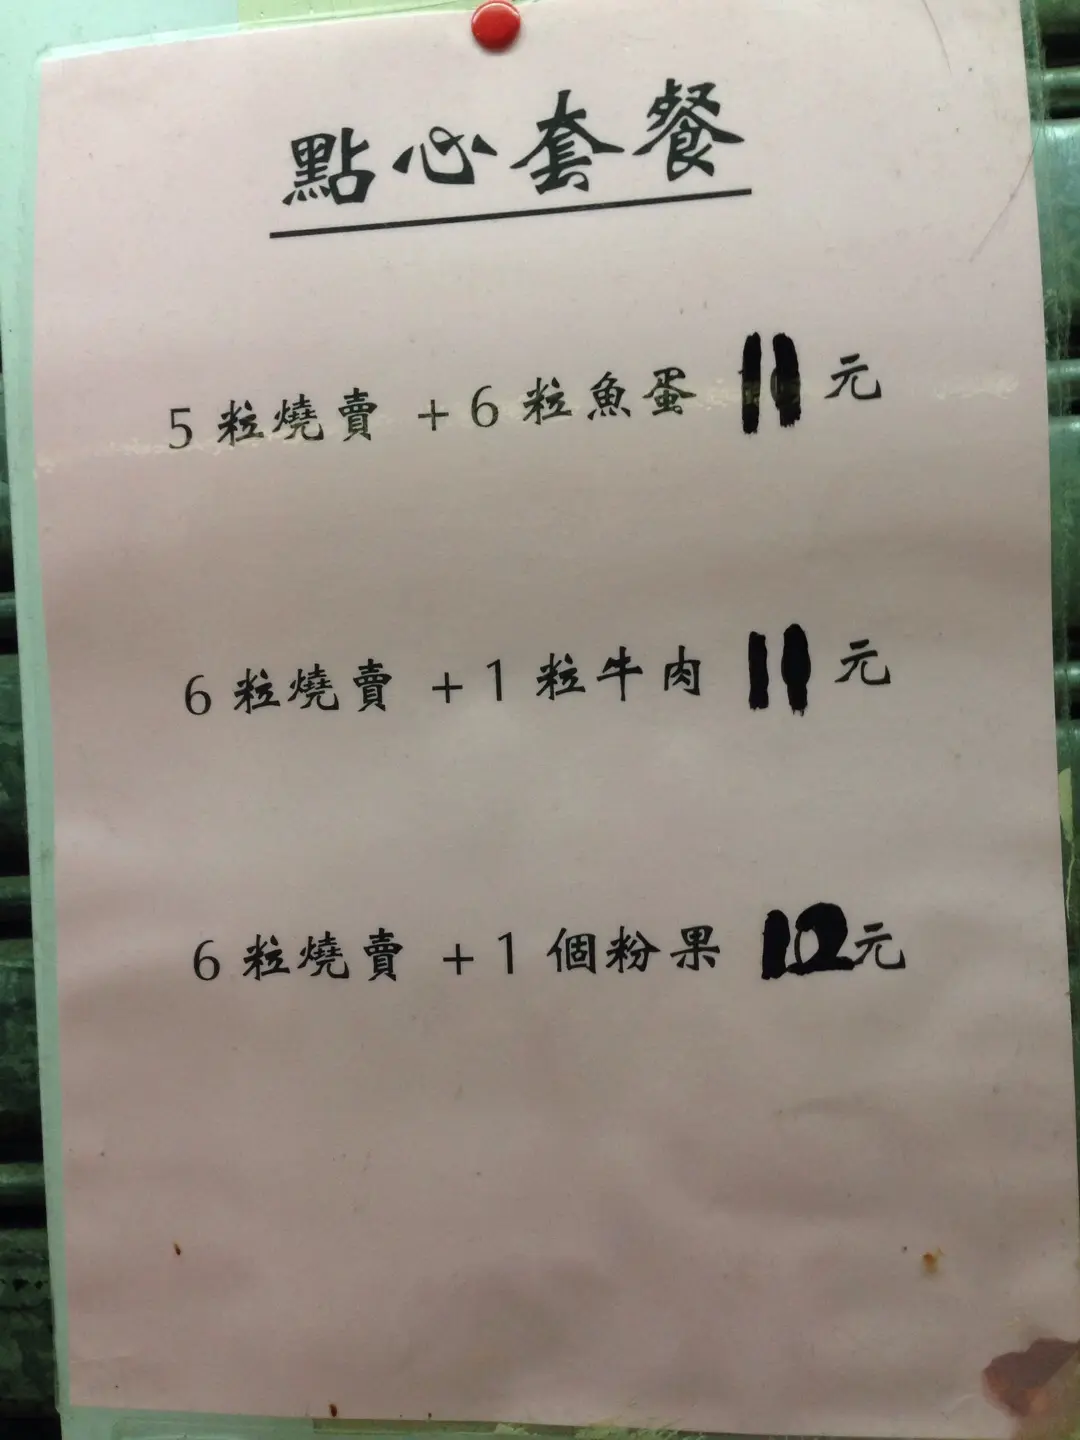 點心套餐
5 粒燒賣 + 6 粒魚蛋 11 元
6 粒燒賣 + 1 粒牛肉 11 元
6 粒燒賣 + 1 個粉果 12元